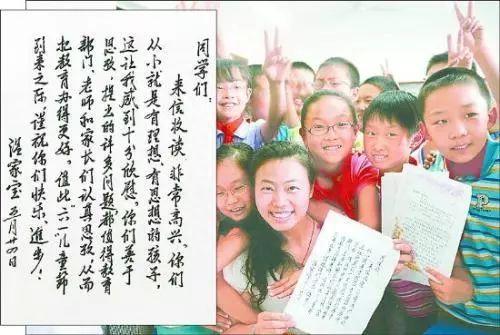 同学们：
来信收读，非常高兴。你们
从小就是有理想、有思想的孩子，
这让我感到十分欣慰。你们善于
思考，提出的许多问题都值得教育
部门、老师和家长们认真思考，从而
把教育办得更好。值此六一儿童节
到来之际，谨祝你们快乐、进步！
温家宝 五月廿四日